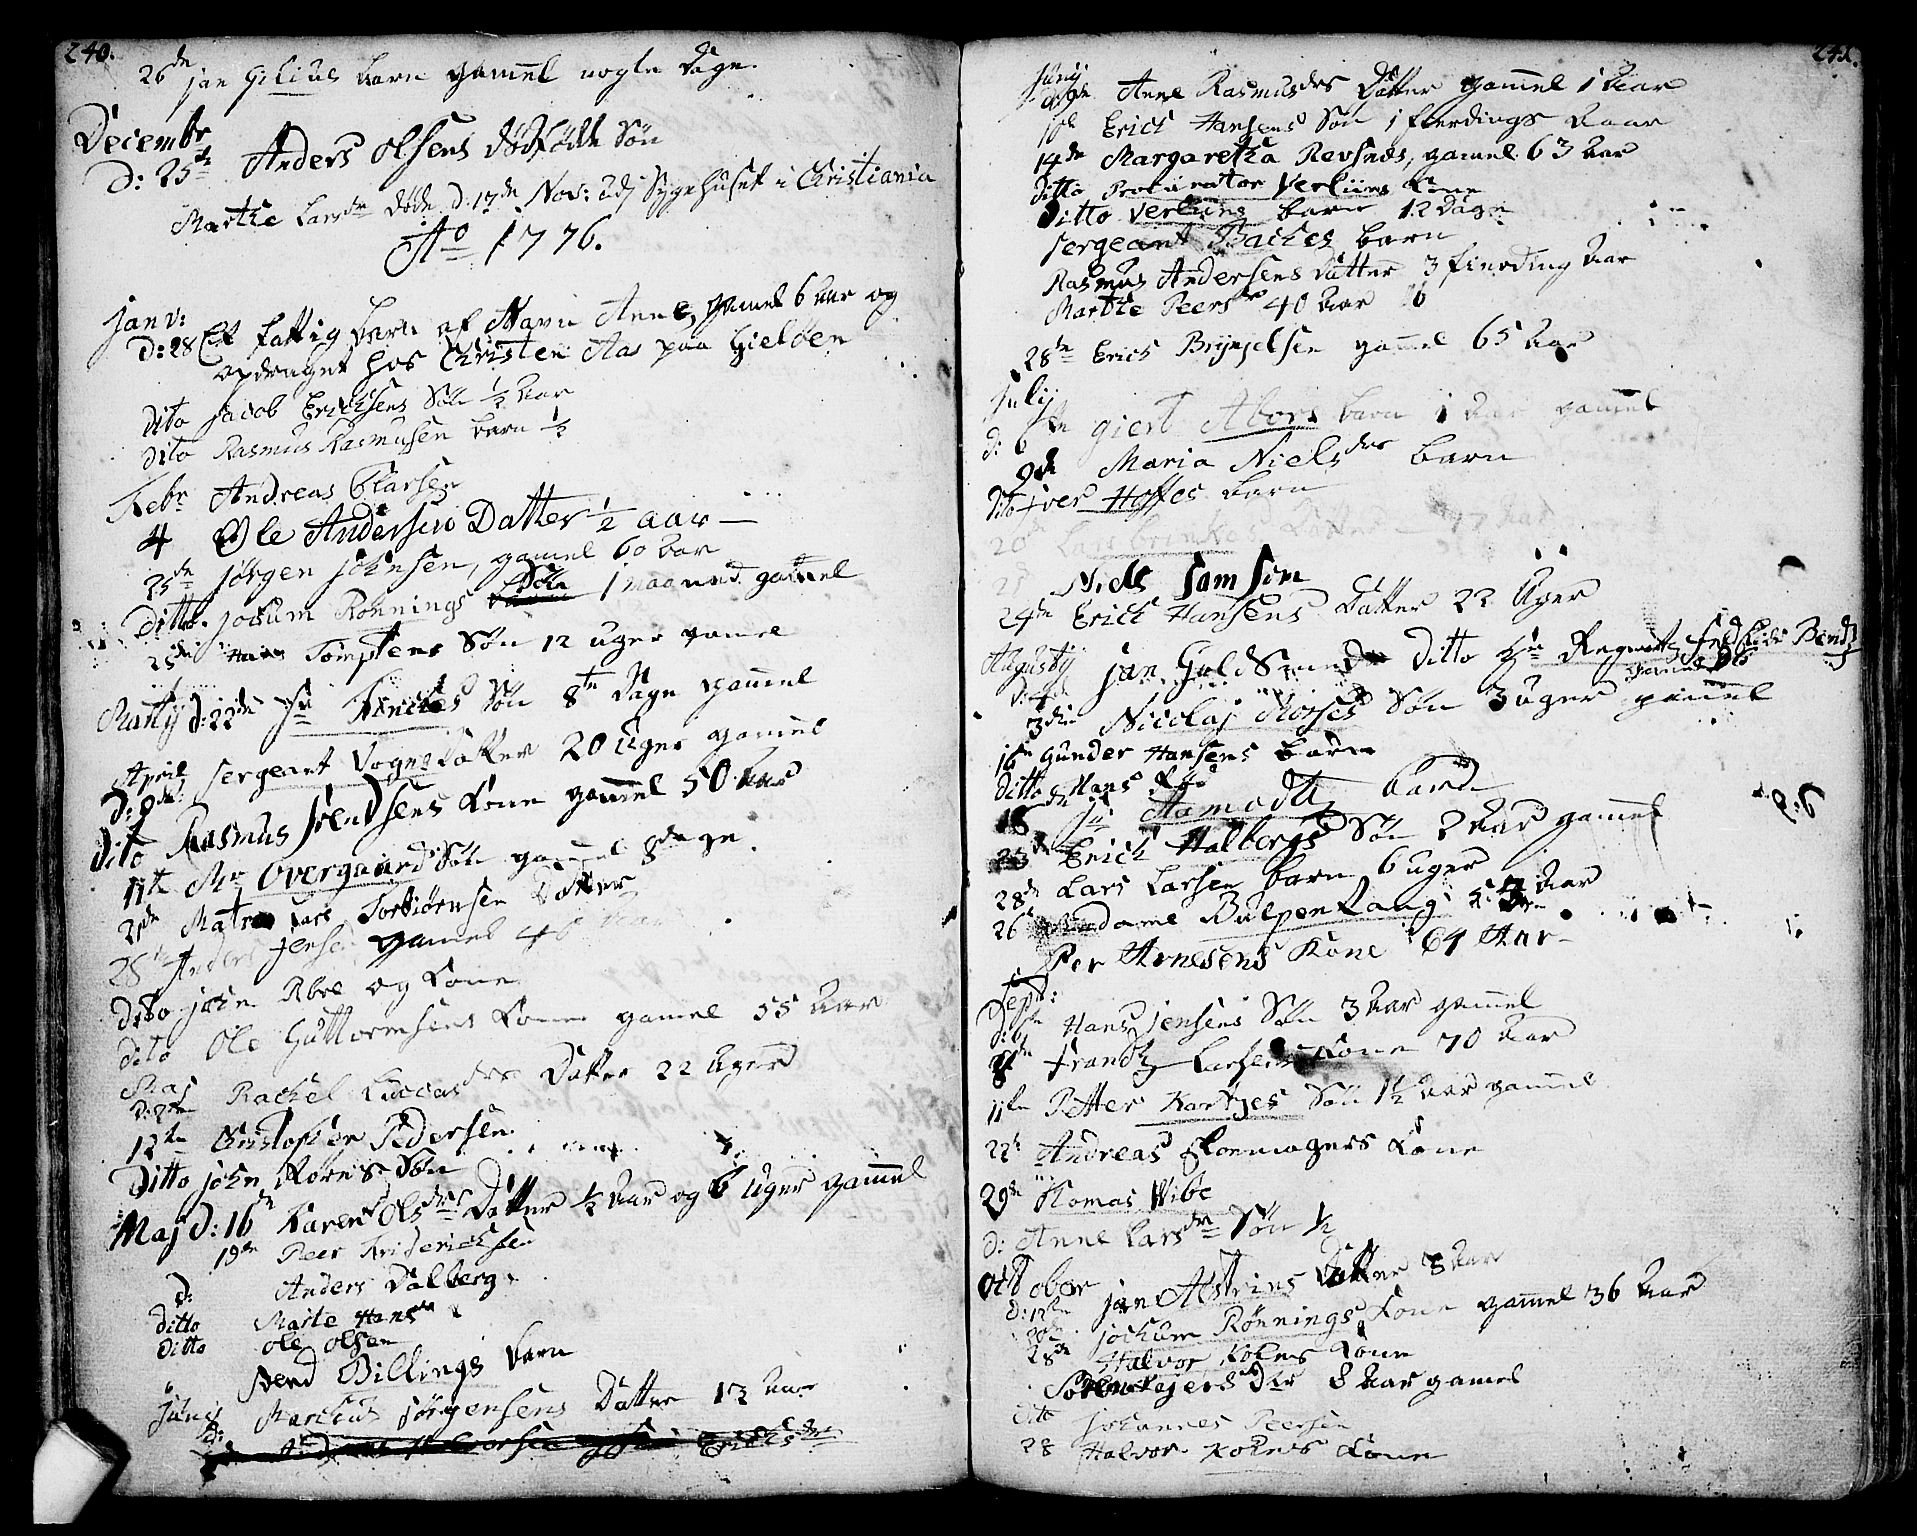 240.
26de jan Gilius barn gammel nogle Dage.
Decembr
D: 25de Anders Olsens dødfødde Søn
Marthe Larsdr døde d: 17de Nov: udj Sygehuset i Christiania
Ao 1776.
Janv:
D: 28 Et fattig barn af Navn Anne, gamel 6 Aar og
opdraget hos Christen Aas paa Gielden
dito Jacob Ericksens Søn ½ Aar
dito Rasmus Rasmusen barn ½
Febr Andreas Clarsen
4 Ole Andersens Datter ½ aar
25de Jørgen Johnsen, gamel 60 Aar
Ditto Jochum Rønnings Søn 1 maaned gammel
25de Tomptens Søn 12 uger gamel
Martij d: 22de Hr Finckes Søn 8te Dage gammel
April sergeant Vogns Datter 20 Uger gammel
D: 9de
dito Rasmus Svendsens Kone gammel 50 Aar
11te Mr Overgaards Søn gammel 8 dage.
21de Matr Lars Torbiørnsen Datter
28de Anders Jensen gamel 40 Aar
dito john Roel og Kone
dito Ole Guttormsens Kone gamel 55 Aar
Maj Rachel Luccasdrs Datter 22 Uger
D: 2den
12te Christopher Pedersen
Ditto john Kornes Søn
Maj d: 16de Karen Olsdrs Datter ½ Aar og 6 Uger gammel
19de Peer Friderichsen
d: Anders Dalberg
ditto Marte Hansdr
ditto Ole Olsen
Svend Billings barn
Junij Marchus Jørgensens Datter 13 Aar
d: Ericksdr
241.
Junij
Anne Rasmusdrs Datter gammel 1 Aar
10de Erich Hansens Søn 1 fierdings Aar
14de Margaretha Revsnes, gamel 63 Aar
ditto Procurator Verliins Kone
Ditto Verliins barn 12 Dage
sergeant Baches barn
Rasmus Andersens Datter 3 fierding Aar
Marthe Peersdr 40 Aar
28de Erich Brynjelsen gammel 65 Aar
Julij
d: 6te giert Abors barn 1 Aar gammel
9de Maria Nielsdrs barn
dito Iver Hoffes barn
20 Lars Brinkes Datter Aar
Niels Samson
24de Erich Hansens Datter 22 Uger
Augustij jan Guldsmed Ditto Hr Regnert Fridrich Bendz
3die Nicolaj Morses Søn 3 uger gammel
16de Gunder Hansens barn
ditto Hans
18de Hr Aamodtz barn
23de Erich Halbergs Søn 2 Aar gammel
28de Lars Larsen barn 6 uger
26de Madame Bulpenlang 53 Aar
Per Arnesens Kone 64 Aar
Sept:
d: 6te Hans Jensens Søn 3 Aar gammel
8de Frandz Larsens Kone 70 Aar
11te Petter Kortjes Søn 1½ Aar gammel
22de Andreas Skoemagers Kone
29de Thomas Wibe
d: Anne Larsdrs Søn ½
October jan Alstrins Datter 8 Aar
d: 12te
20de jochum Rønnings Kone gammel 36 Aar
28de Halvor Kokens Kone
Søren Vejers Dtr 8 Aar gamel
Ditto Johannes Peersen
28 Halvor Kokens Kone